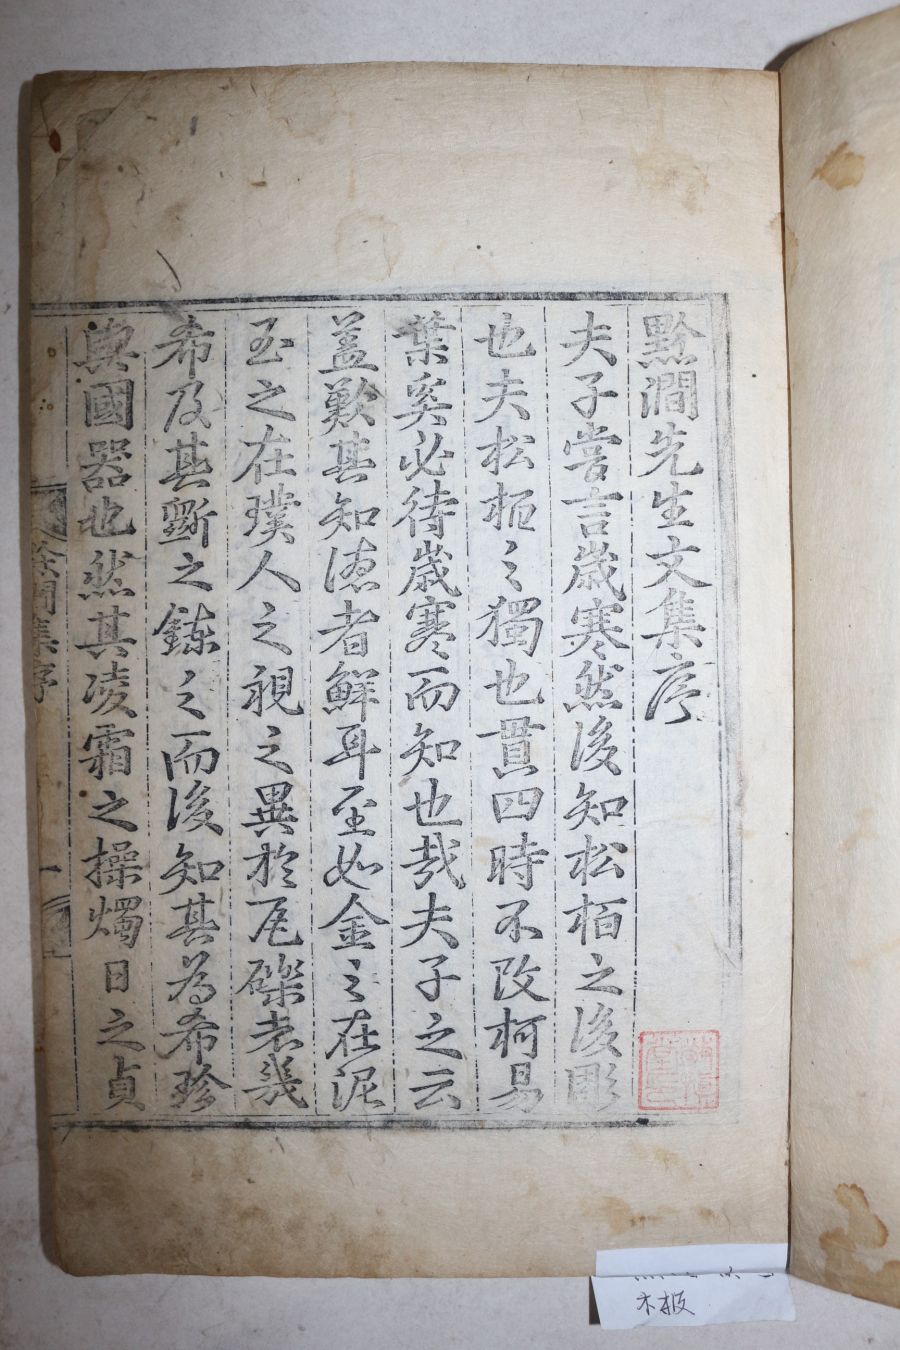 黔澗先生文集序
夫子嘗言歲寒然後知松栢之後彫
也夫松栢之獨也貫四時不改柯易
葉奚必待歲寒而知也哉夫子之云
盖歎其知德者鮮耳至如金之在泥
玉之在璞人之視之異於瓦礫者幾
希及其斲之鍊之而後知其為希珍
與國器也然其凌霜之操燭日之貞
澗集序
一
木板